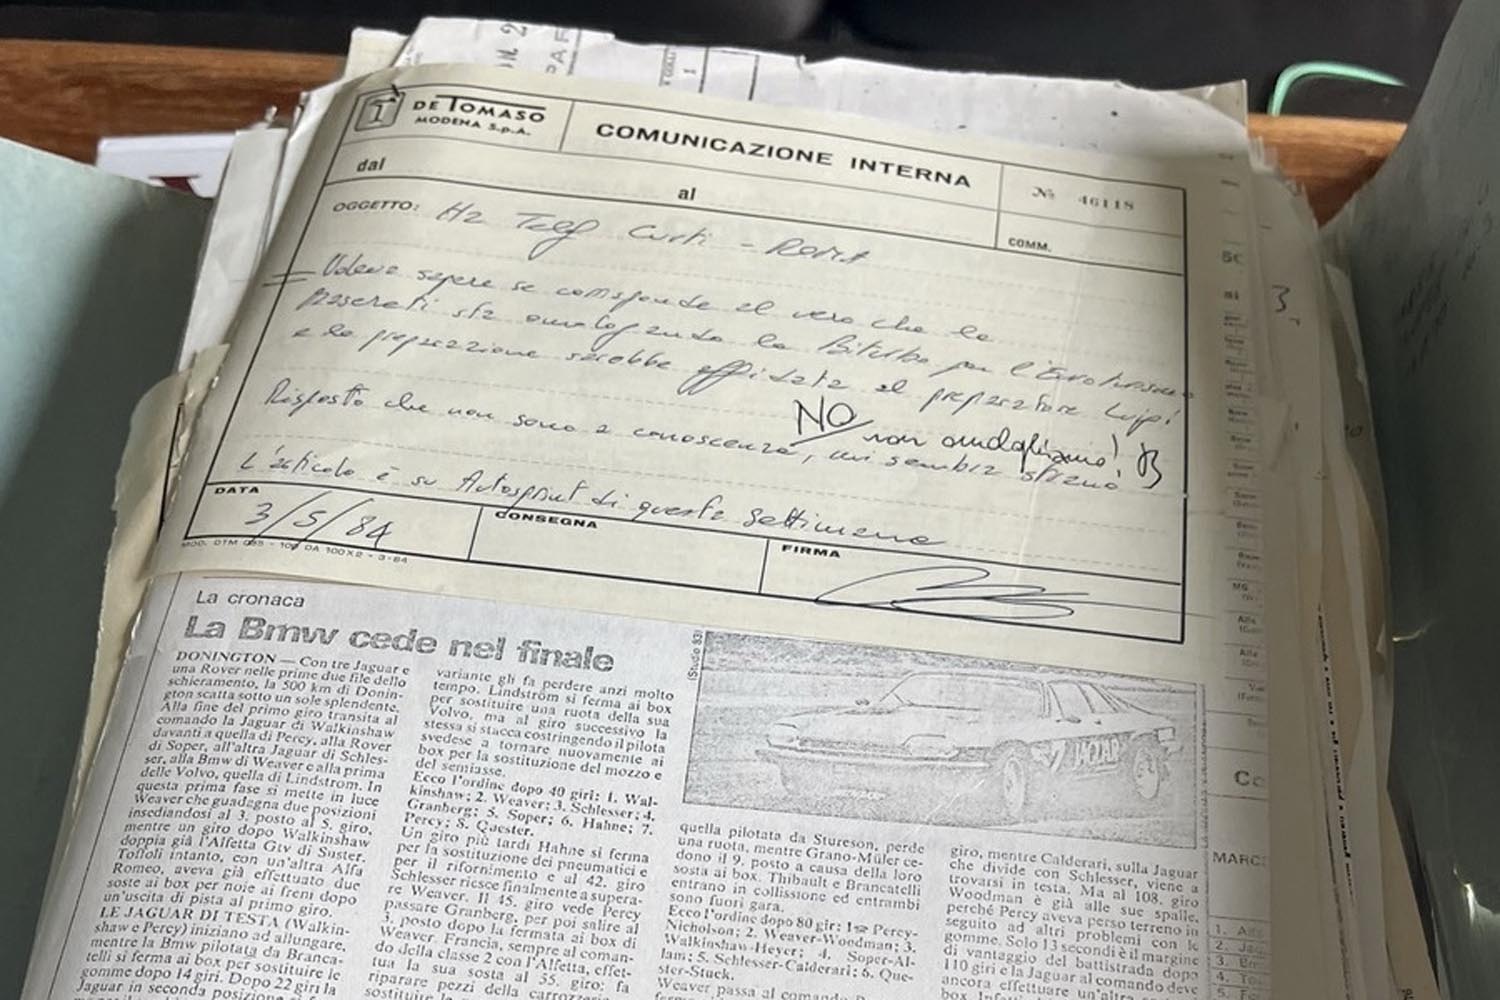 DE TOMASO
MODENA S.p.A.
COMUNICAZIONE INTERNA
No 46118
dal
al
COMM.
OGGETTO: Ha Telef Curti - ROMA
Voleva sapere se corrisponde al vero che la
Maserati sta omologando la Biturbo per l'Euroturismo
e la preparazione sarebbe affidata al preparatore
NO non omologhiamo!
Risposto che non sono a conoscenza, mi sembra strano
L'articolo è su Autosprint di questa settimana
DATA
3/5/84
CONSEGNA
FIRMA
MOD. DTM - 100 DA 100X2 - 3-84
La cronaca
La Bmw cede nel finale
(Studio 83)
DONINGTON — Con tre Jaguar e
una Rover nelle prime due file dello
schieramento, la 500 km di Donin-
gton scatta sotto un sole splendente.
Alla fine del primo giro transita al
comando la Jaguar di Walkinshaw
davanti a quella di Percy, alla Rover
di Soper, all'altra Jaguar di Schles-
ser, alla Bmw di Weaver e alla prima
delle Volvo, quella di Lindstrom. In
questa prima fase si mette in luce
Weaver che guadagna due posizioni
insediandosi al 3. posto al 5. giro,
mentre un giro dopo Walkinshaw
doppia già l'Alfetta Gtv di Suster.
Toffoli intanto, con un'altra Alfa
Romeo, aveva già effettuato due
soste ai box per noie ai freni dopo
un'uscita di pista al primo giro.
LE JAGUAR DI TESTA (Walkin-
shaw e Percy) iniziano ad allungare,
mentre la Bmw pilotata da Branca-
telli si ferma ai box per sostituire le
gomme dopo 14 giri. Dopo 22 giri la
Jaguar in seconda posizione si
variante gli fa perdere anzi molto
tempo. Lindström si ferma ai box
per sostituire una ruota della sua
Volvo, ma al giro successivo la
stessa si stacca costringendo il pilota
svedese a tornare nuovamente ai
box per la sostituzione del mozzo e
del semiasse.
Ecco l'ordine dopo 40 giri: 1. Wal-
kinshaw; 2. Weaver; 3. Schlesser; 4.
Granberg; 5. Soper; 6. Hahne; 7.
Percy; 8. Quester.
Un giro più tardi Hahne si ferma
per la sostituzione dei pneumatici e
per il rifornimento e al 42. giro
Schlesser riesce finalmente a supera-
re Weaver. Il 45. giro vede Percy
passare Granberg, per poi salire al
3. posto dopo la fermata ai box di
Weaver. Francia, sempre al coman-
do della classe 2 con l'Alfetta, effet-
tua la sua sosta al 55. giro; fa
riparare pezzi della carrozzeria
sostituire le
JAGUAR
quella pilotata da Stureson, perde
una ruota, mentre Grano-Müler ce-
dono il 9. posto a causa della loro
sosta ai box. Thibault e Brancatelli
entrano in collissione ed entrambi
sono fuori gara.
Ecco l'ordine dopo 80 gir: 1. Percy-
Nicholson; 2. Weaver-Woodman; 3.
Walkinshaw-Heyer; 4. Soper-Al-
lam; 5. Schlesser-Calderari; 6. Que-
ster-Stuck.
Weaver passa al comando
giro, mentre Calderari, sulla Jaguar
che divide con Schlesser, viene a
trovarsi in testa. Ma al 108. giro
Woodman è già alle sue spalle,
perché Percy aveva perso terreno in
seguito ad altri problemi con le
gomme. Solo 13 secondi è il margine
di vantaggio del battistrada dopo
110 giri e la Jaguar al comando deve
ancora effettuare un'altra
box.